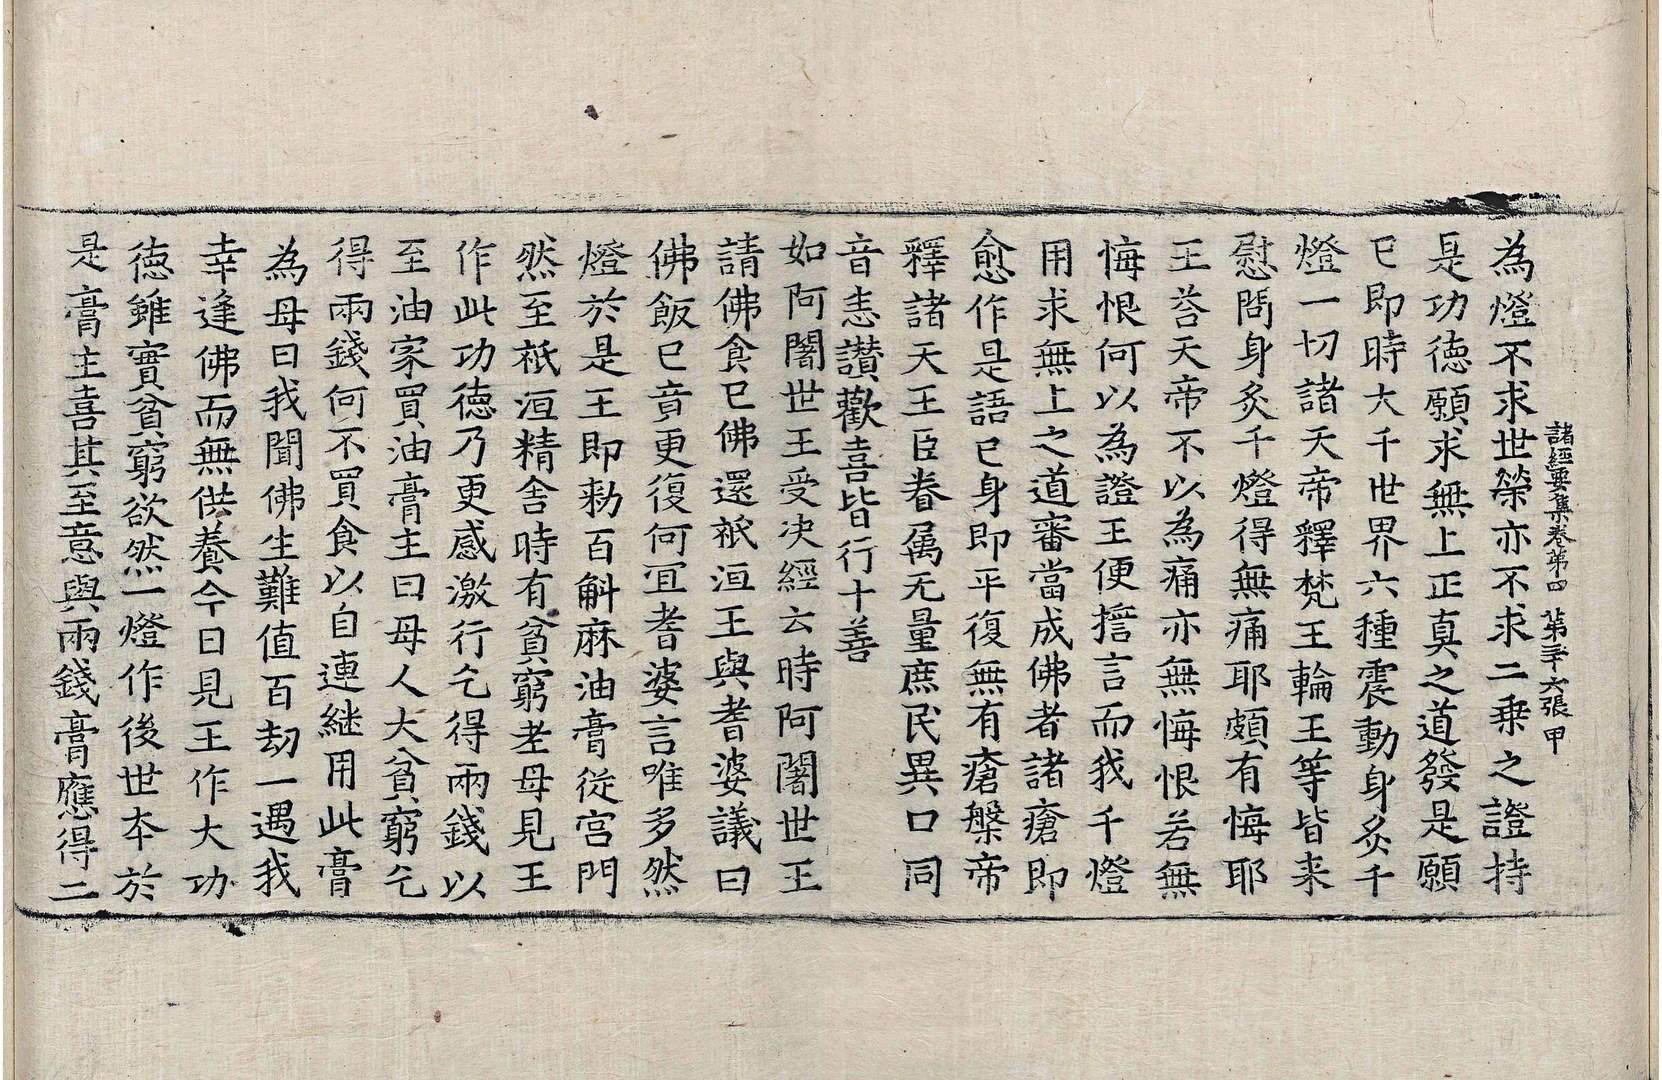 諸經要集卷第四　第三十六張甲
為燈不求世榮亦不求二乗之證持
是功徳願求無上正真之道發是願
已即時大千世界六種震動身炙千
燈一切諸天帝釋梵王輪王等皆来
慰問身炙千燈得無痛耶頗有悔耶
王荅天帝不以為痛亦無悔恨若無
悔恨何以為證王便擔言而我千燈
用求無上之道審當成佛者諸瘡即
愈作是語已身即平復無有瘡槃帝
釋諸天王臣眷属无量庶民異口同
音恚讃歡喜皆行十善
如阿闍世王受决經云時阿闍世王
請佛食已佛還祇洹王與耆婆議曰
佛飯已音更復何冝耆婆言唯多然
燈於是王即勑百斛麻油膏従宮門
然至祇洹精舎時有貧窮老母見王
作此功徳乃更感激行乞得兩錢以
至油家買油膏主曰母人大貧窮乞
得兩錢何不買食以自連継用此膏
為母曰我聞佛生難值百劫一遇我
幸逢佛而無供養今日見王作大功
徳雖實貧窮欲然一燈作後世本於
是膏主喜其至意與兩錢膏應得二